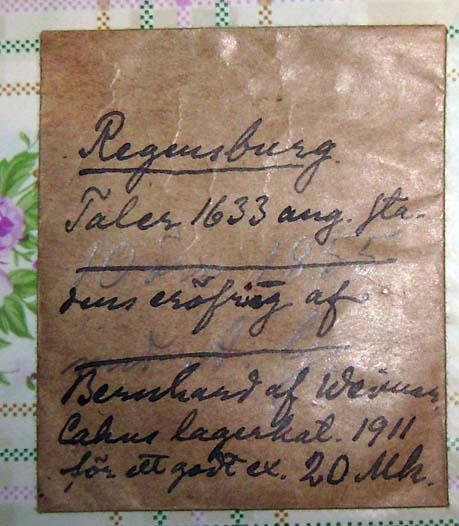 Regensburg.
Taler 1633 ang. sta-
dens eröfrig af
Bernhard af Weimar.
Cahns lagerkat. 1911
för ett godt ex. 20 Mk.